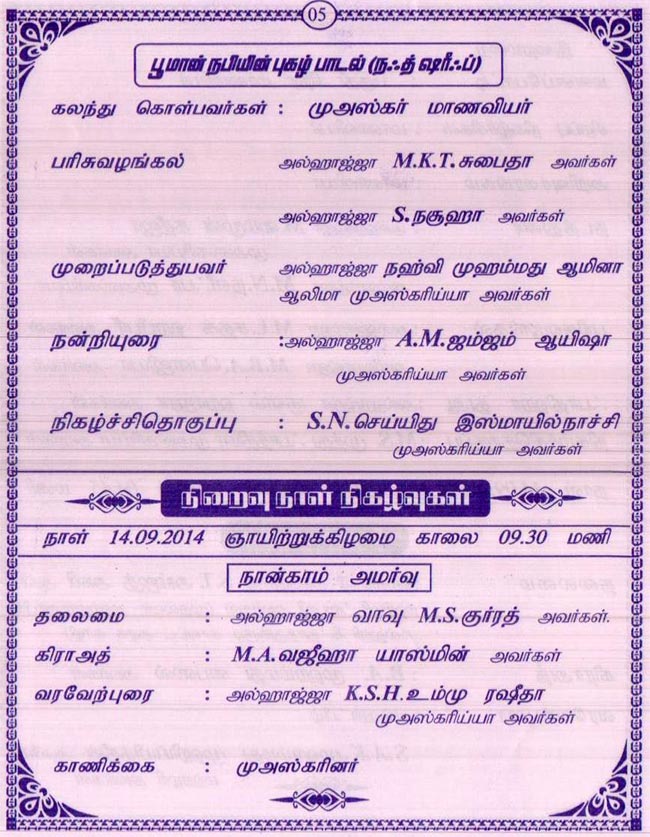 05
பூமான் நபியின் புகழ் பாடல் (நஃத் ஷரீஃப்)
கலந்து கொள்பவர்கள் : முஅஸ்கர் மாணவியர்
பரிசுவழங்கல் அல்ஹாஜ்ஜா M.K.T.சுபைதா அவர்கள்
அல்ஹாஜ்ஜா S.நசூஹா அவர்கள்
முறைப்படுத்துபவர் அல்ஹாஜ்ஜா நஹ்வி முஹம்மது ஆமினா
ஆலிமா முஅஸ்கரிய்யா அவர்கள்
நன்றியுரை :அல்ஹாஜ்ஜா A.M.ஜம்ஜம் ஆயிஷா
முஅஸ்கரிய்யா அவர்கள்
நிகழ்ச்சிதொகுப்பு : S.N.செய்யிது இஸ்மாயில்நாச்சி
முஅஸ்கரிய்யா அவர்கள்
நிறைவு நாள் நிகழ்வுகள்
நாள் 14.09.2014 ஞாயிற்றுக்கிழமை காலை 09.30 மணி
நான்காம் அமர்வு
தலைமை : அல்ஹாஜ்ஜா வாவு M.S.குர்ரத் அவர்கள்.
கிராஅத் : M.A.வஜீஹா யாஸ்மின் அவர்கள்
வரவேற்புரை : அல்ஹாஜ்ஜா K.S.H.உம்மு ரஷீதா
முஅஸ்கரிய்யா அவர்கள்
காணிக்கை : முஅஸ்கரினர்